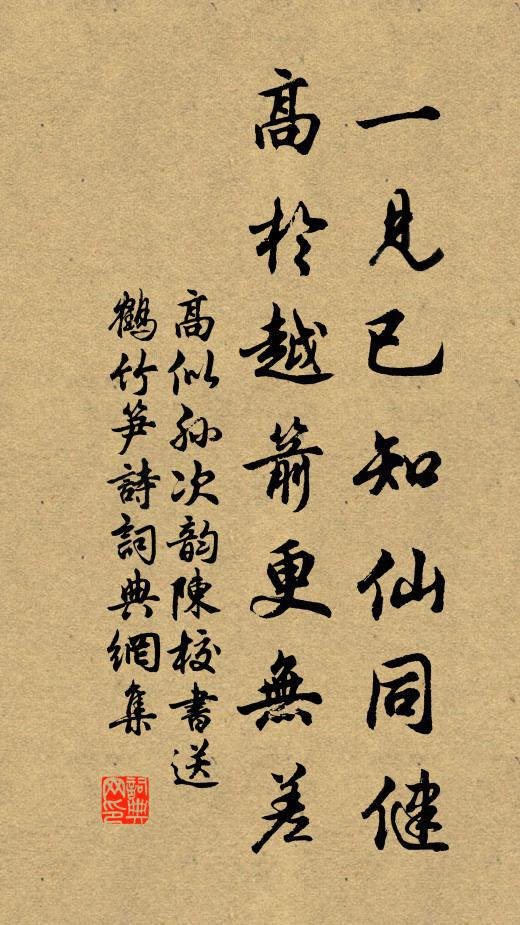 一見已知仙同健
高於越箭更無差
高似孫次韵陳校書送
鶴竹笋詩詞典網集
詞典网印